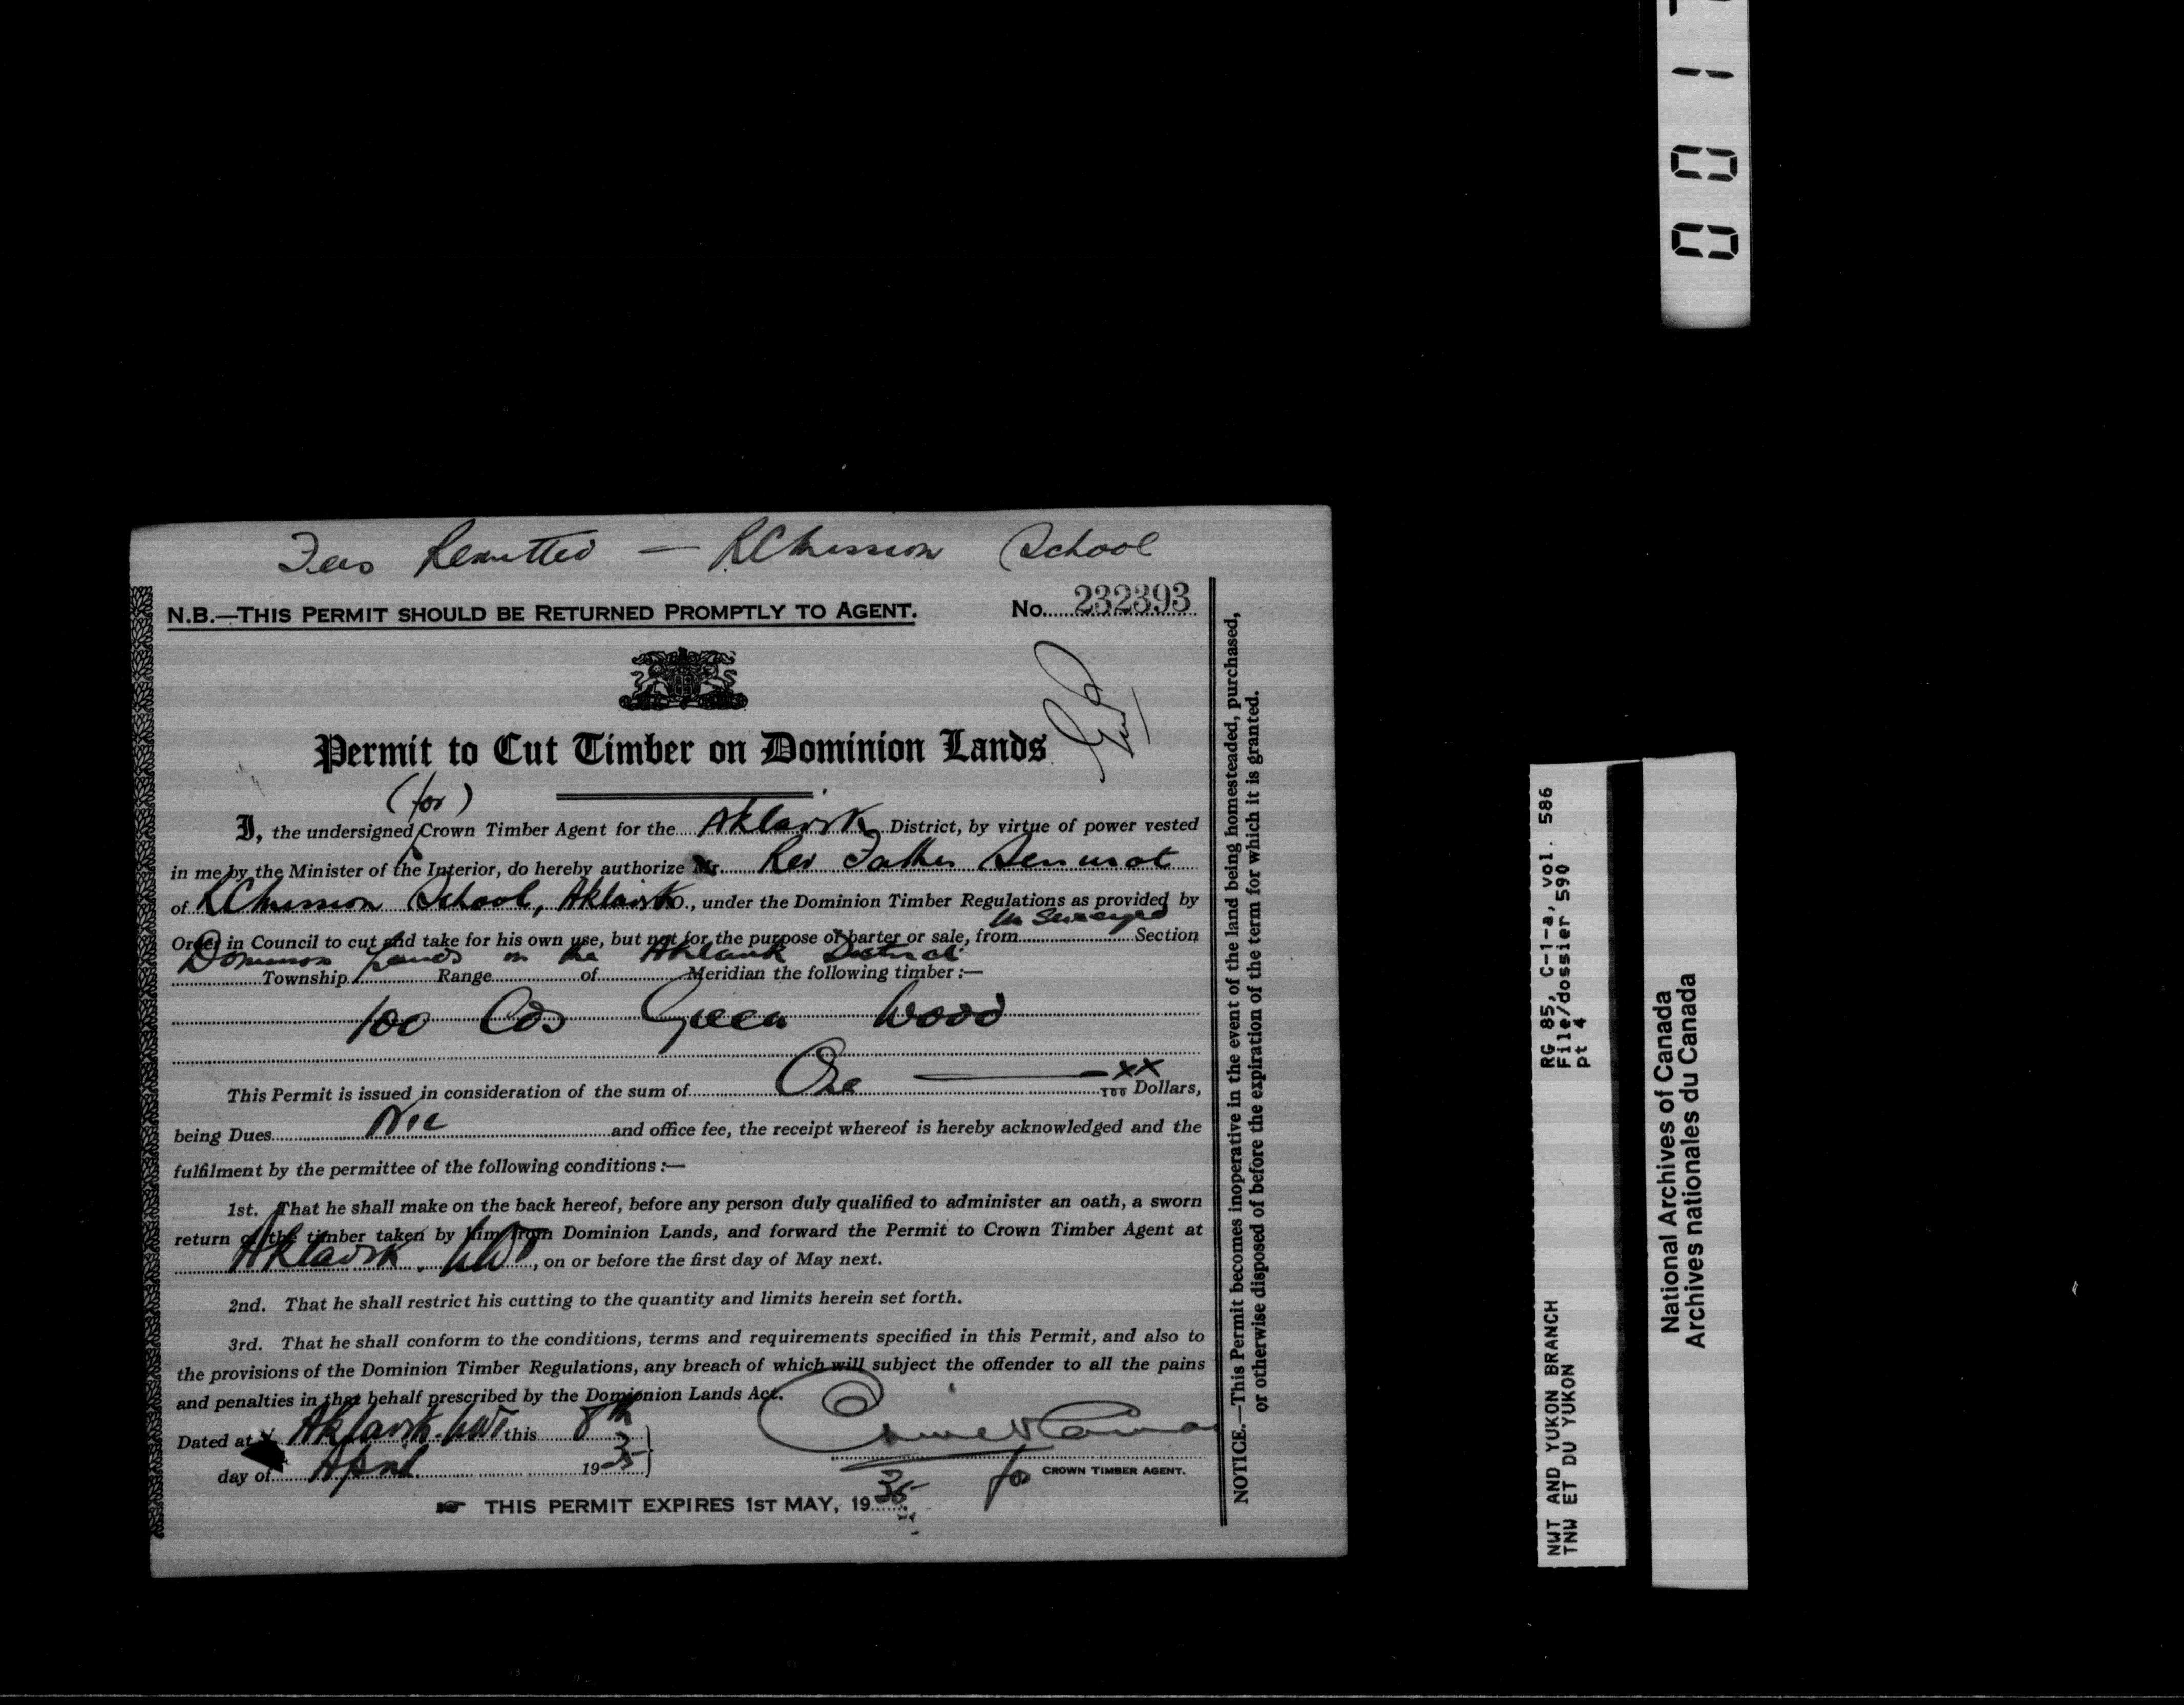 Fees Remitted — RC Mission School
N.B.—THIS PERMIT SHOULD BE RETURNED PROMPTLY TO AGENT. No. 232393
Permit to Cut Timber on Dominion Lands
(for)
I, the undersigned Crown Timber Agent for the Aklavik District, by virtue of power vested
in me by the Minister of the Interior, do hereby authorize Mr. Rev Father
of RC Mission School, Aklavik O., under the Dominion Timber Regulations as provided by
Order in Council to cut and take for his own use, but not for the purpose of barter or sale, from Un Surveyed Section
Dominion Lands in the Aklavik District
Township Range of Meridian the following timber:—
100 Cds Green Wood
This Permit is issued in consideration of the sum of One — xx/100 Dollars,
being Dues Nil and office fee, the receipt whereof is hereby acknowledged and the
fulfilment by the permittee of the following conditions:—
1st. That he shall make on the back hereof, before any person duly qualified to administer an oath, a sworn
return of the timber taken by him from Dominion Lands, and forward the Permit to Crown Timber Agent at
Aklavik. NWT, on or before the first day of May next.
2nd. That he shall restrict his cutting to the quantity and limits herein set forth.
3rd. That he shall conform to the conditions, terms and requirements specified in this Permit, and also to
the provisions of the Dominion Timber Regulations, any breach of which will subject the offender to all the pains
and penalties in that behalf prescribed by the Domjonion Lands Act.
Dated at Aklavik. NWT this 8th
day of April 1935
for CROWN TIMBER AGENT.
THIS PERMIT EXPIRES 1ST MAY, 1935
NOTICE.—This Permit becomes inoperative in the event of the land being homesteaded, purchased,
or otherwise disposed of before the expiration of the term for which it is granted.
RG 85, C-1-a, vol. 586
File/dossier 590
pt 4
NWT AND YUKON BRANCH
TNW ET DU YUKON
National Archives of Canada
Archives nationales du Canada
0 0 1